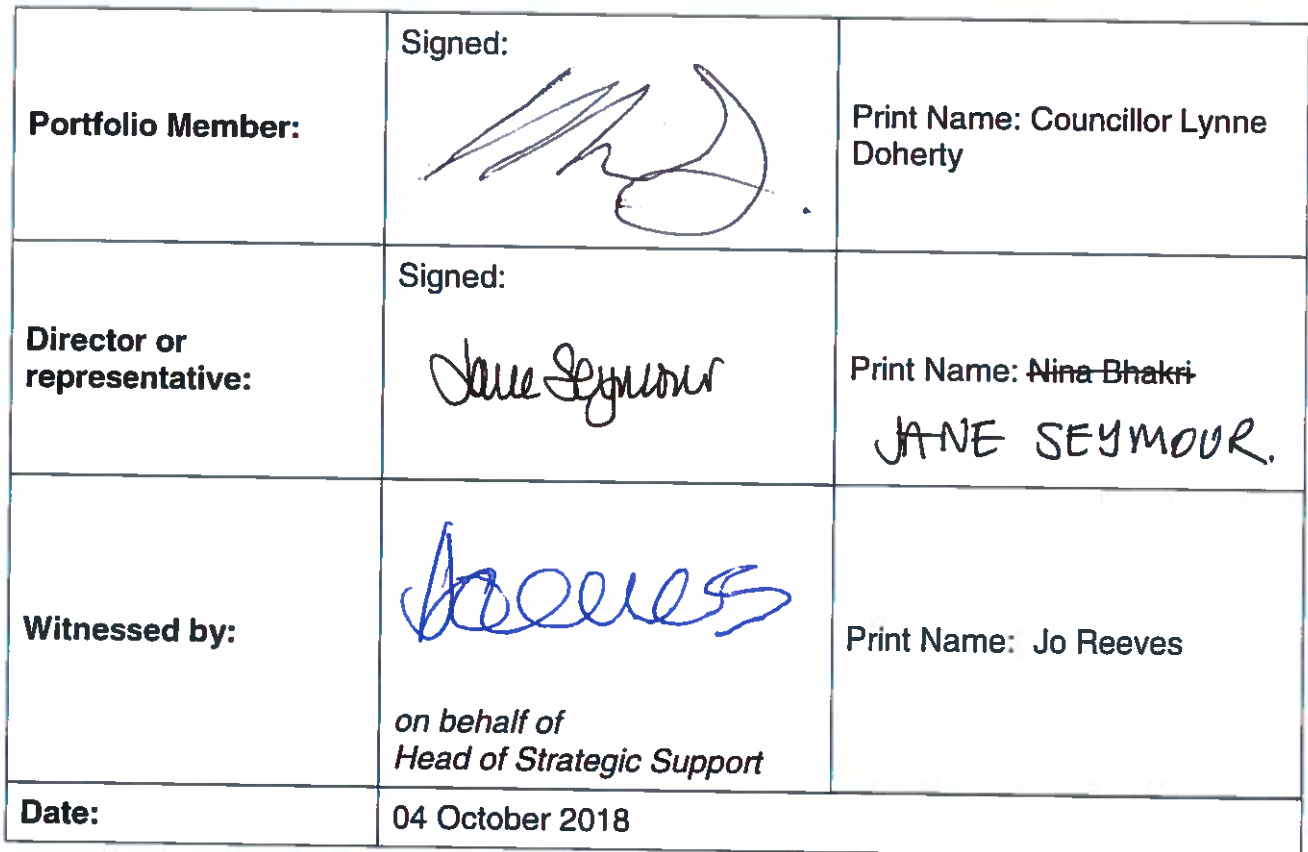 Portfolio Member:
Signed:
Print Name: Councillor Lynne
Doherty
Director or
representative:
Signed:
Jane Seymour
Print Name: Nina Bhakri
JANE SEYMOUR.
Witnessed by:
on behalf of
Head of Strategic Support
Print Name: Jo Reeves
Date:
04 October 2018